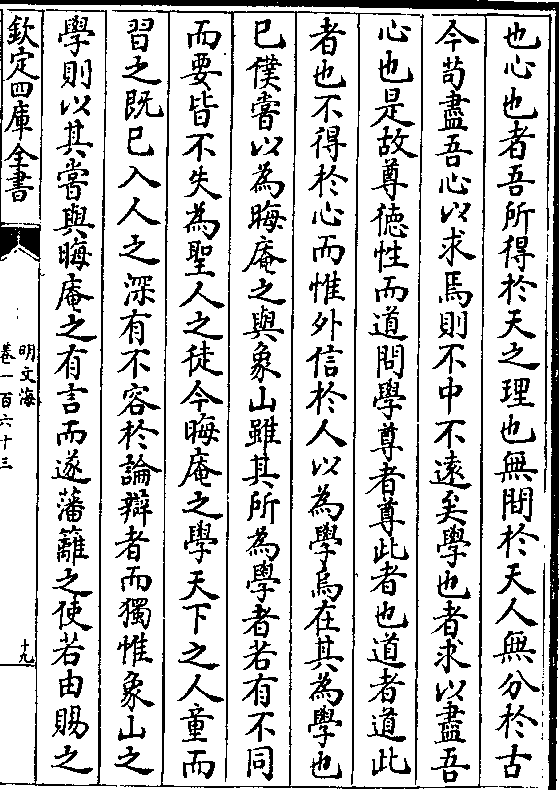 也心也者吾所得於天之理也無間於天人無分於古
今苟盡吾心以求焉則不中不遠矣學也者求以盡吾
心也是故尊德性而道問學尊者尊此者也道者道此
者也不得於心而惟外信於人以為學烏在其為學也
已僕嘗以為晦庵之與象山雖其所為學者若有不同
而要皆不失為聖人之徒今晦庵之學天下之人童而
習之既已入人之深有不容於論辯者而獨惟象山之
學則以其嘗與晦庵之有言而遂藩籬之使若由賜之
欽定四庫全書
明文海
卷一百六十三
十九